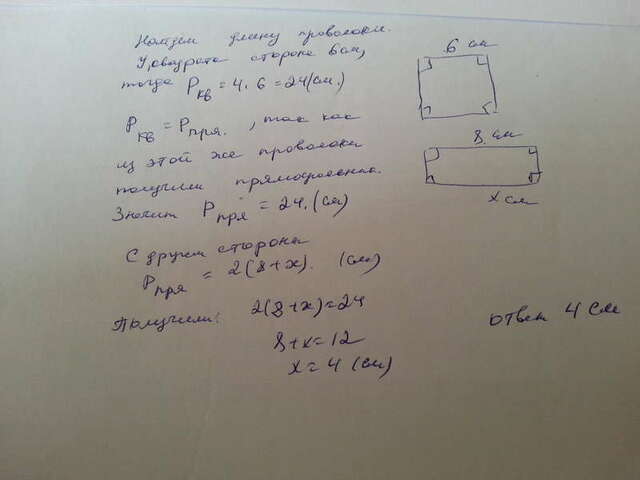 Найдем длину проволоки.
У квадрата сторона 6см,
тогда Pкв = 4 · 6 = 24(см.)
6 см
Pкв = Pпря. , так как
из этой же проволоки
получили прямоугольник.
Значит Pпря = 24. (см)
8 см
x см
С другой стороны
Pпря = 2(8+x). (см)
Получили: 2(8+x)=24
8+x=12
x=4 (см)
ответ 4 см